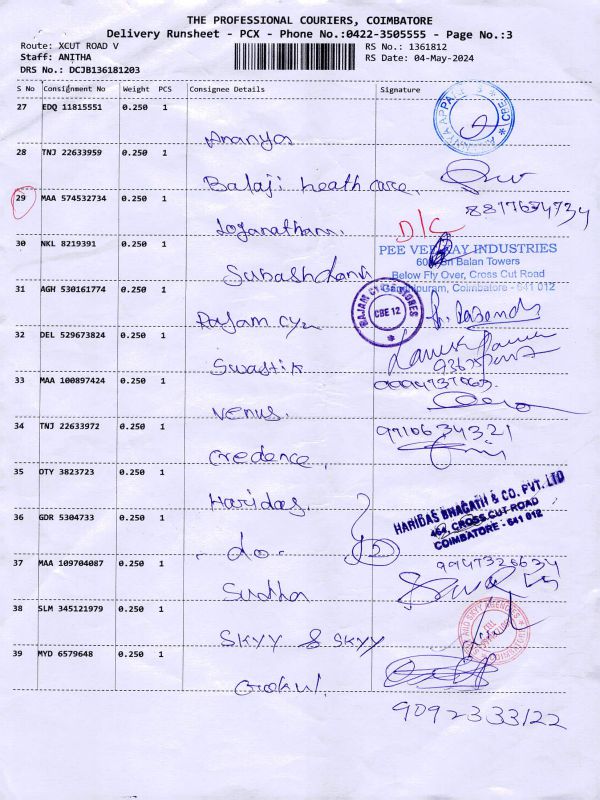 THE PROFESSIONAL COURIERS, COIMBATORE
Delivery Runsheet - PCX - Phone No.:0422-3505555 - Page No.:3
Route: XCUT ROAD V
RS No.: 1361812
Staff: ANITHA
RS Date: 04-May-2024
DRS No.: DCJB136181203
S No Consignment No Weight PCS Consignee Details Signature
27 EDQ 11815551 0.250 1
Ananyas
28 TNJ 22633959 0.250 1
Balaji heath care.
29 MAA 574532734 0.250 1
8817634734
Loganatham.
D/C
30 NKL 8219391 0.250 1
PEE VEE KAY INDUSTRIES
Balan Towers
Below Fly Over, Cross Cut Road
Gandhipuram, Coimbatore - 641 012
Subash
31 AGH 530161774 0.250 1
RAJAM CYCLE STORES
CBE 12
Rajam cy
32 DEL 529673824 0.250 1
Swastik
33 MAA 100897424 0.250 1
Venus.
34 TNJ 22633972 0.250 1
9910634321
Credence.
35 DTY 3823723 0.250 1
Haridas.
HARIDAS BHAGATH & CO. PVT. LTD
464, CROSS CUT ROAD
COIMBATORE - 641 012
36 GDR 5304733 0.250 1
- do -
2
37 MAA 109704087 0.250 1
9947326634
Sudha
38 SLM 345121979 0.250 1
SKYY & SKYY
39 MYD 6579648 0.250 1
Gokul.
9092333122